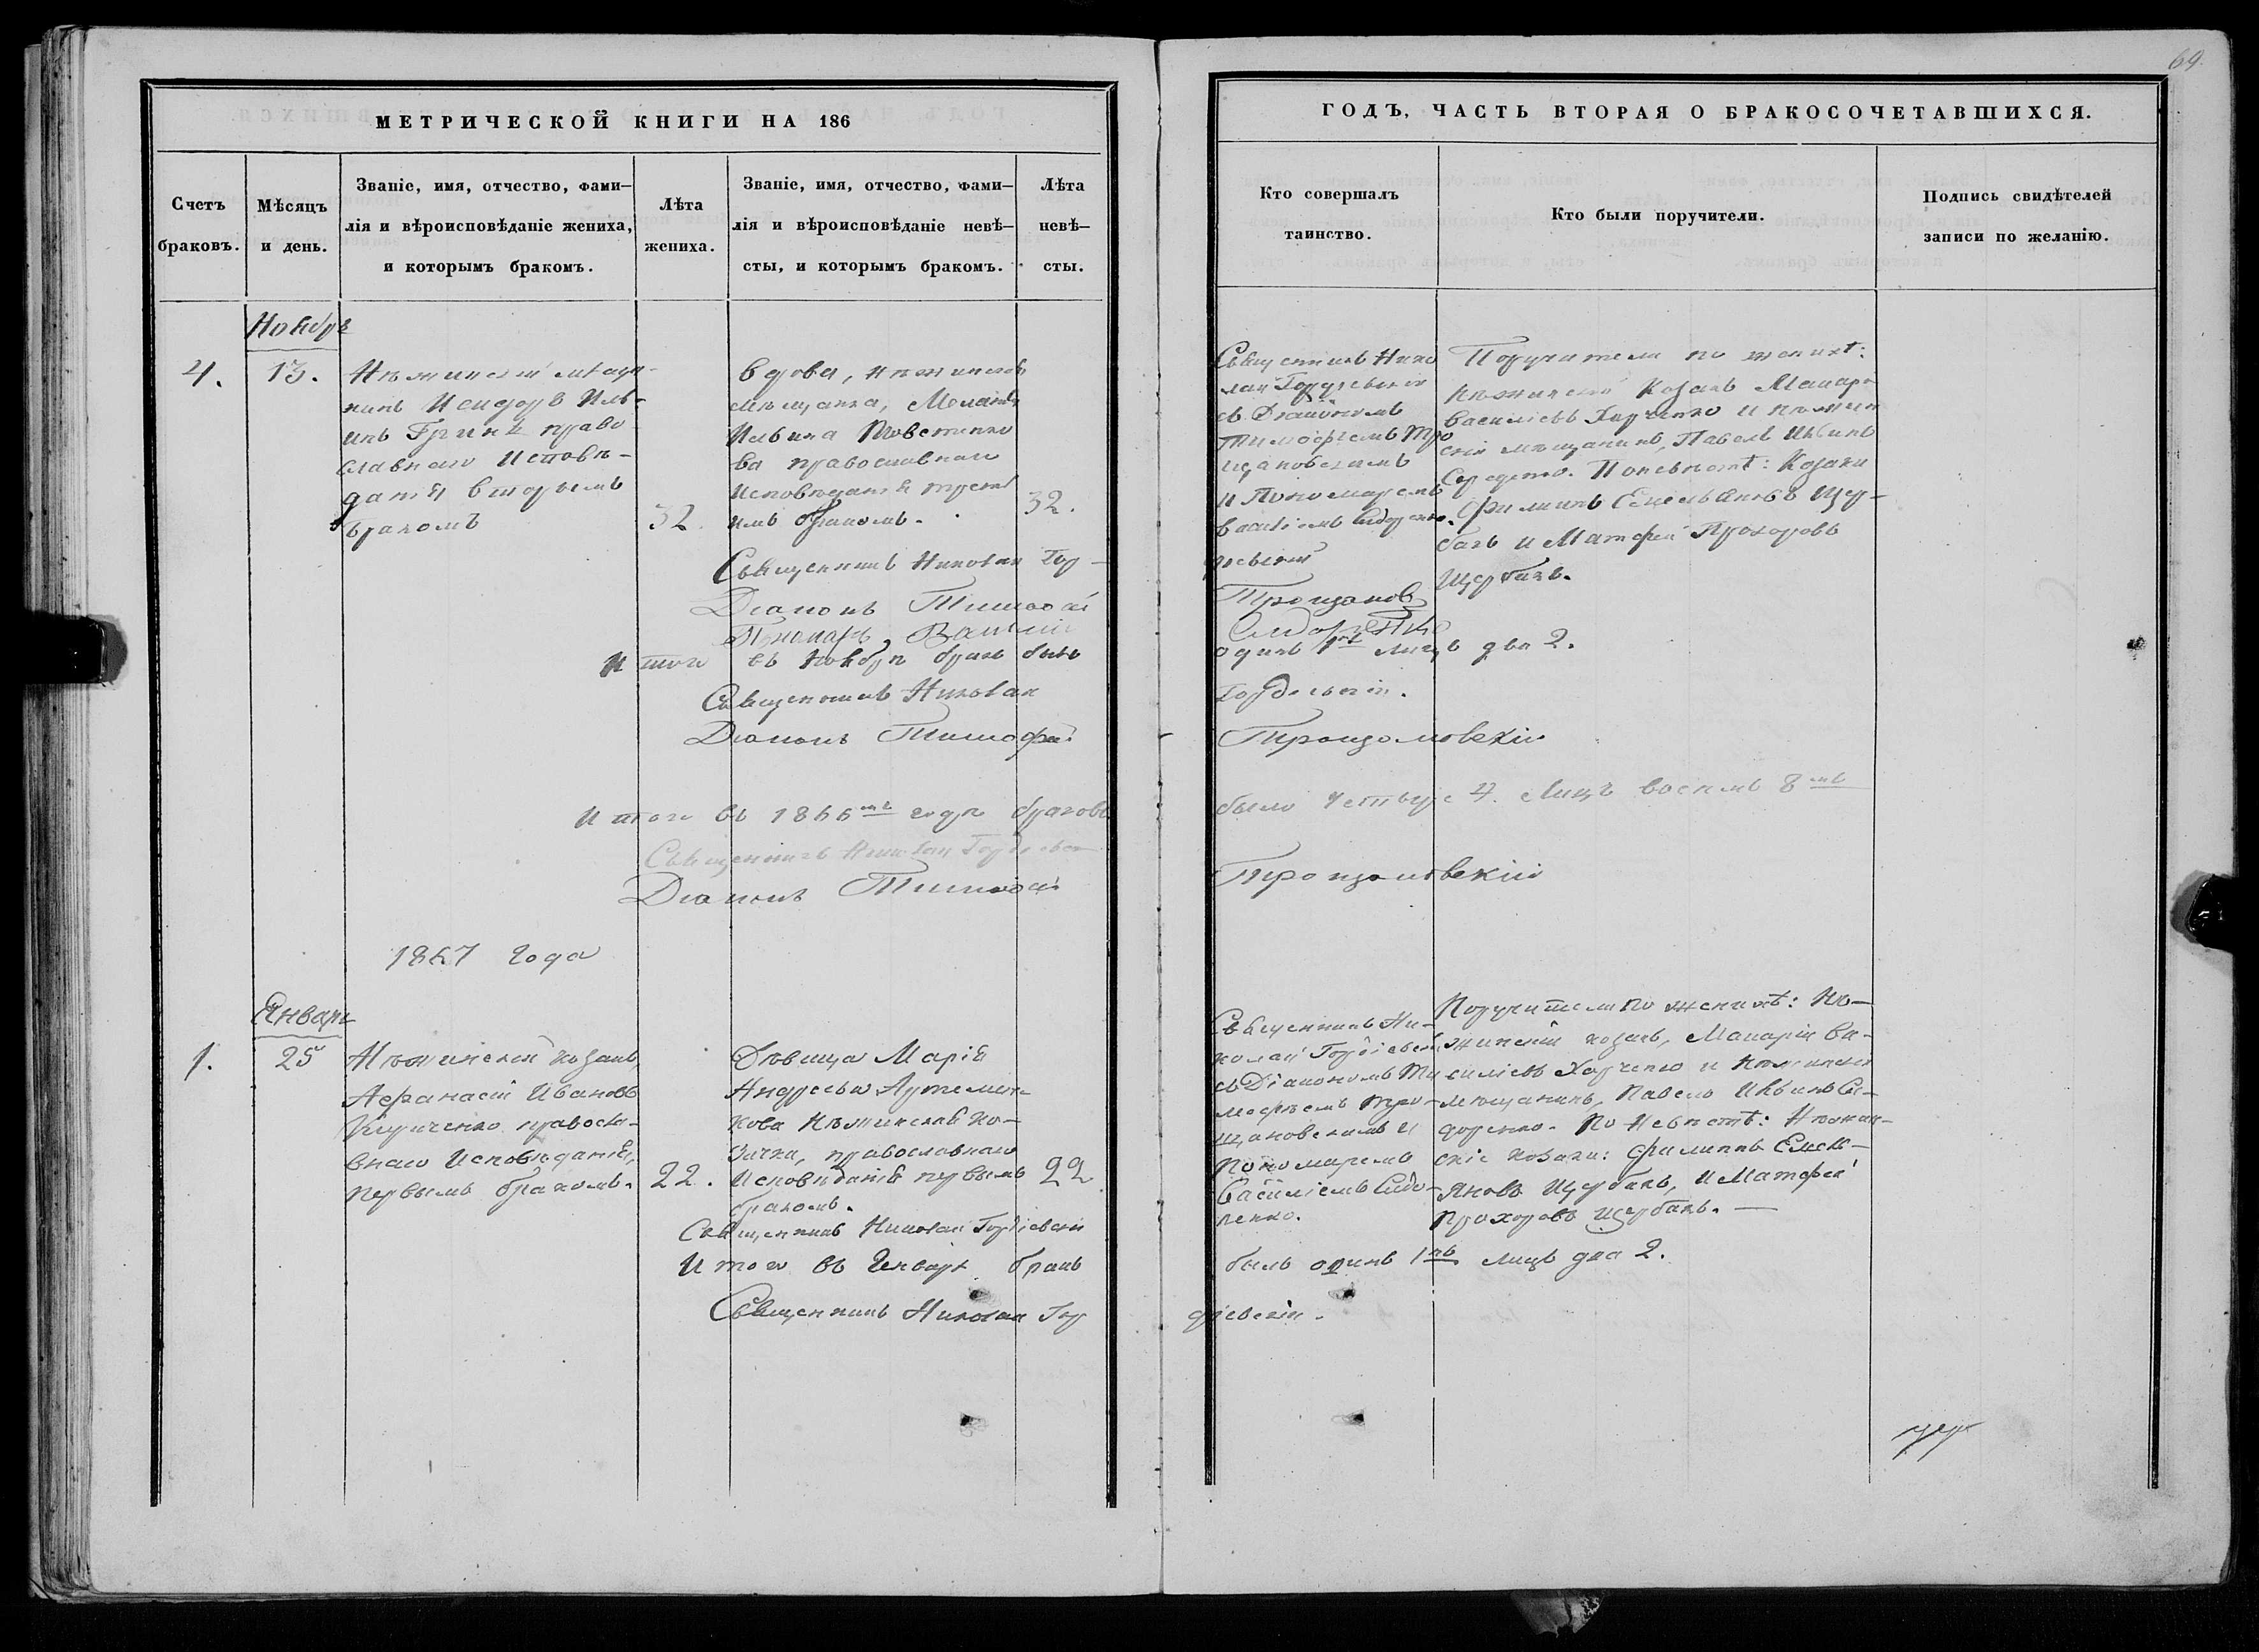 69.
МЕТРИЧЕСКОЙ КНИГИ НА 186
Счетъ
браковъ.
Мѣсяцъ
и день.
Званіе, имя, отчество, фами-
лія и вѣроисповѣданіе жениха,
и которымъ бракомъ.
Лѣта
жениха.
Званіе, имя, отчество, фами-
лія и вѣроисповѣданіе невѣ-
сты, и которымъ бракомъ.
Лѣта
невѣ-
сты.
Ноябрь
4.
13.
Нѣжинскій мѣщан-
нинъ Исидоръ Иль-
инъ право
славнаго Исповѣ-
данія вторымъ
бракомъ
32.
вдова, нѣжинская
мѣщанка,
Ильина Товстенко
ва православнаго
Исповѣданія треть
имъ бракомъ.
32.
Священникъ Николай Гор-
Діаконъ Тимофей
Пономарь Василій
Итого въ Ноябрѣ бракъ былъ
Священникъ Николай
Діаконъ Тимофей
Итого въ 1866мъ годѣ браковъ
Священникъ Николай
Діаконъ Тимофей
1867 Года
Январь
1.
25
Нѣжинскій козакъ,
Афанасій Ивановъ
правосла-
внаго Исповѣданія,
первымъ бракомъ.
22.
Дѣвица Марія
Андреева Артемен-
кова Нѣжинская ко-
зачка, православнаго
Исповѣданія первымъ
бракомъ.
22
Священникъ Николай Гордіевскій
Итого въ Январѣ бракъ
Священникъ Николай Гор
ГОДЪ, ЧАСТЬ ВТОРАЯ О БРАКОСОЧЕТАВШИХСЯ.
Кто совершалъ
таинство.
Кто были поручители.
Подпись свидѣтелей
записи по желанію.
Священникъ Нико
лай Гордіевскій
съ Діакономъ
Тимофеемъ Тро
цяновскимъ
и Пономаремъ
Василіемъ Сидоренко.
діевскій
Поручители по женихѣ:
нѣжинскій Козакъ Макарій
Василіевъ Харченко и нѣжин
скій мѣщанинъ, Павелъ Ивинъ
Сидоренко. По невѣстѣ: Козаки
Филипъ Емельяновъ Щер-
бакъ и Матфей Прохоровъ
Щербакъ.
одинъ 1нъ лицъ два 2.
Гордіевскій.
Троцяновскій
было четыре 4. Лицъ восемь 8мь
Троцяновскій
Священникъ Ни-
колай Гордіевскій
съ Діакономъ Ти
мофеемъ Тро-
цяновскимъ и
Пономаремъ
Василіемъ Сидо-
ренко.
Поручители по женихѣ: Нѣ-
жинскій козакъ, Макарій Ва-
силіевъ Харченко и Нѣжинскій
мѣщанинъ, Павелъ Ивинъ Си-
доренко. По Невѣстѣ: Нѣжин-
скіе козаки: Филиппъ Емель-
яновъ Щербакъ, и Матфей
Прохоровъ Щербакъ. —
былъ одинъ 1нъ лицъ два 2.
діевскій.